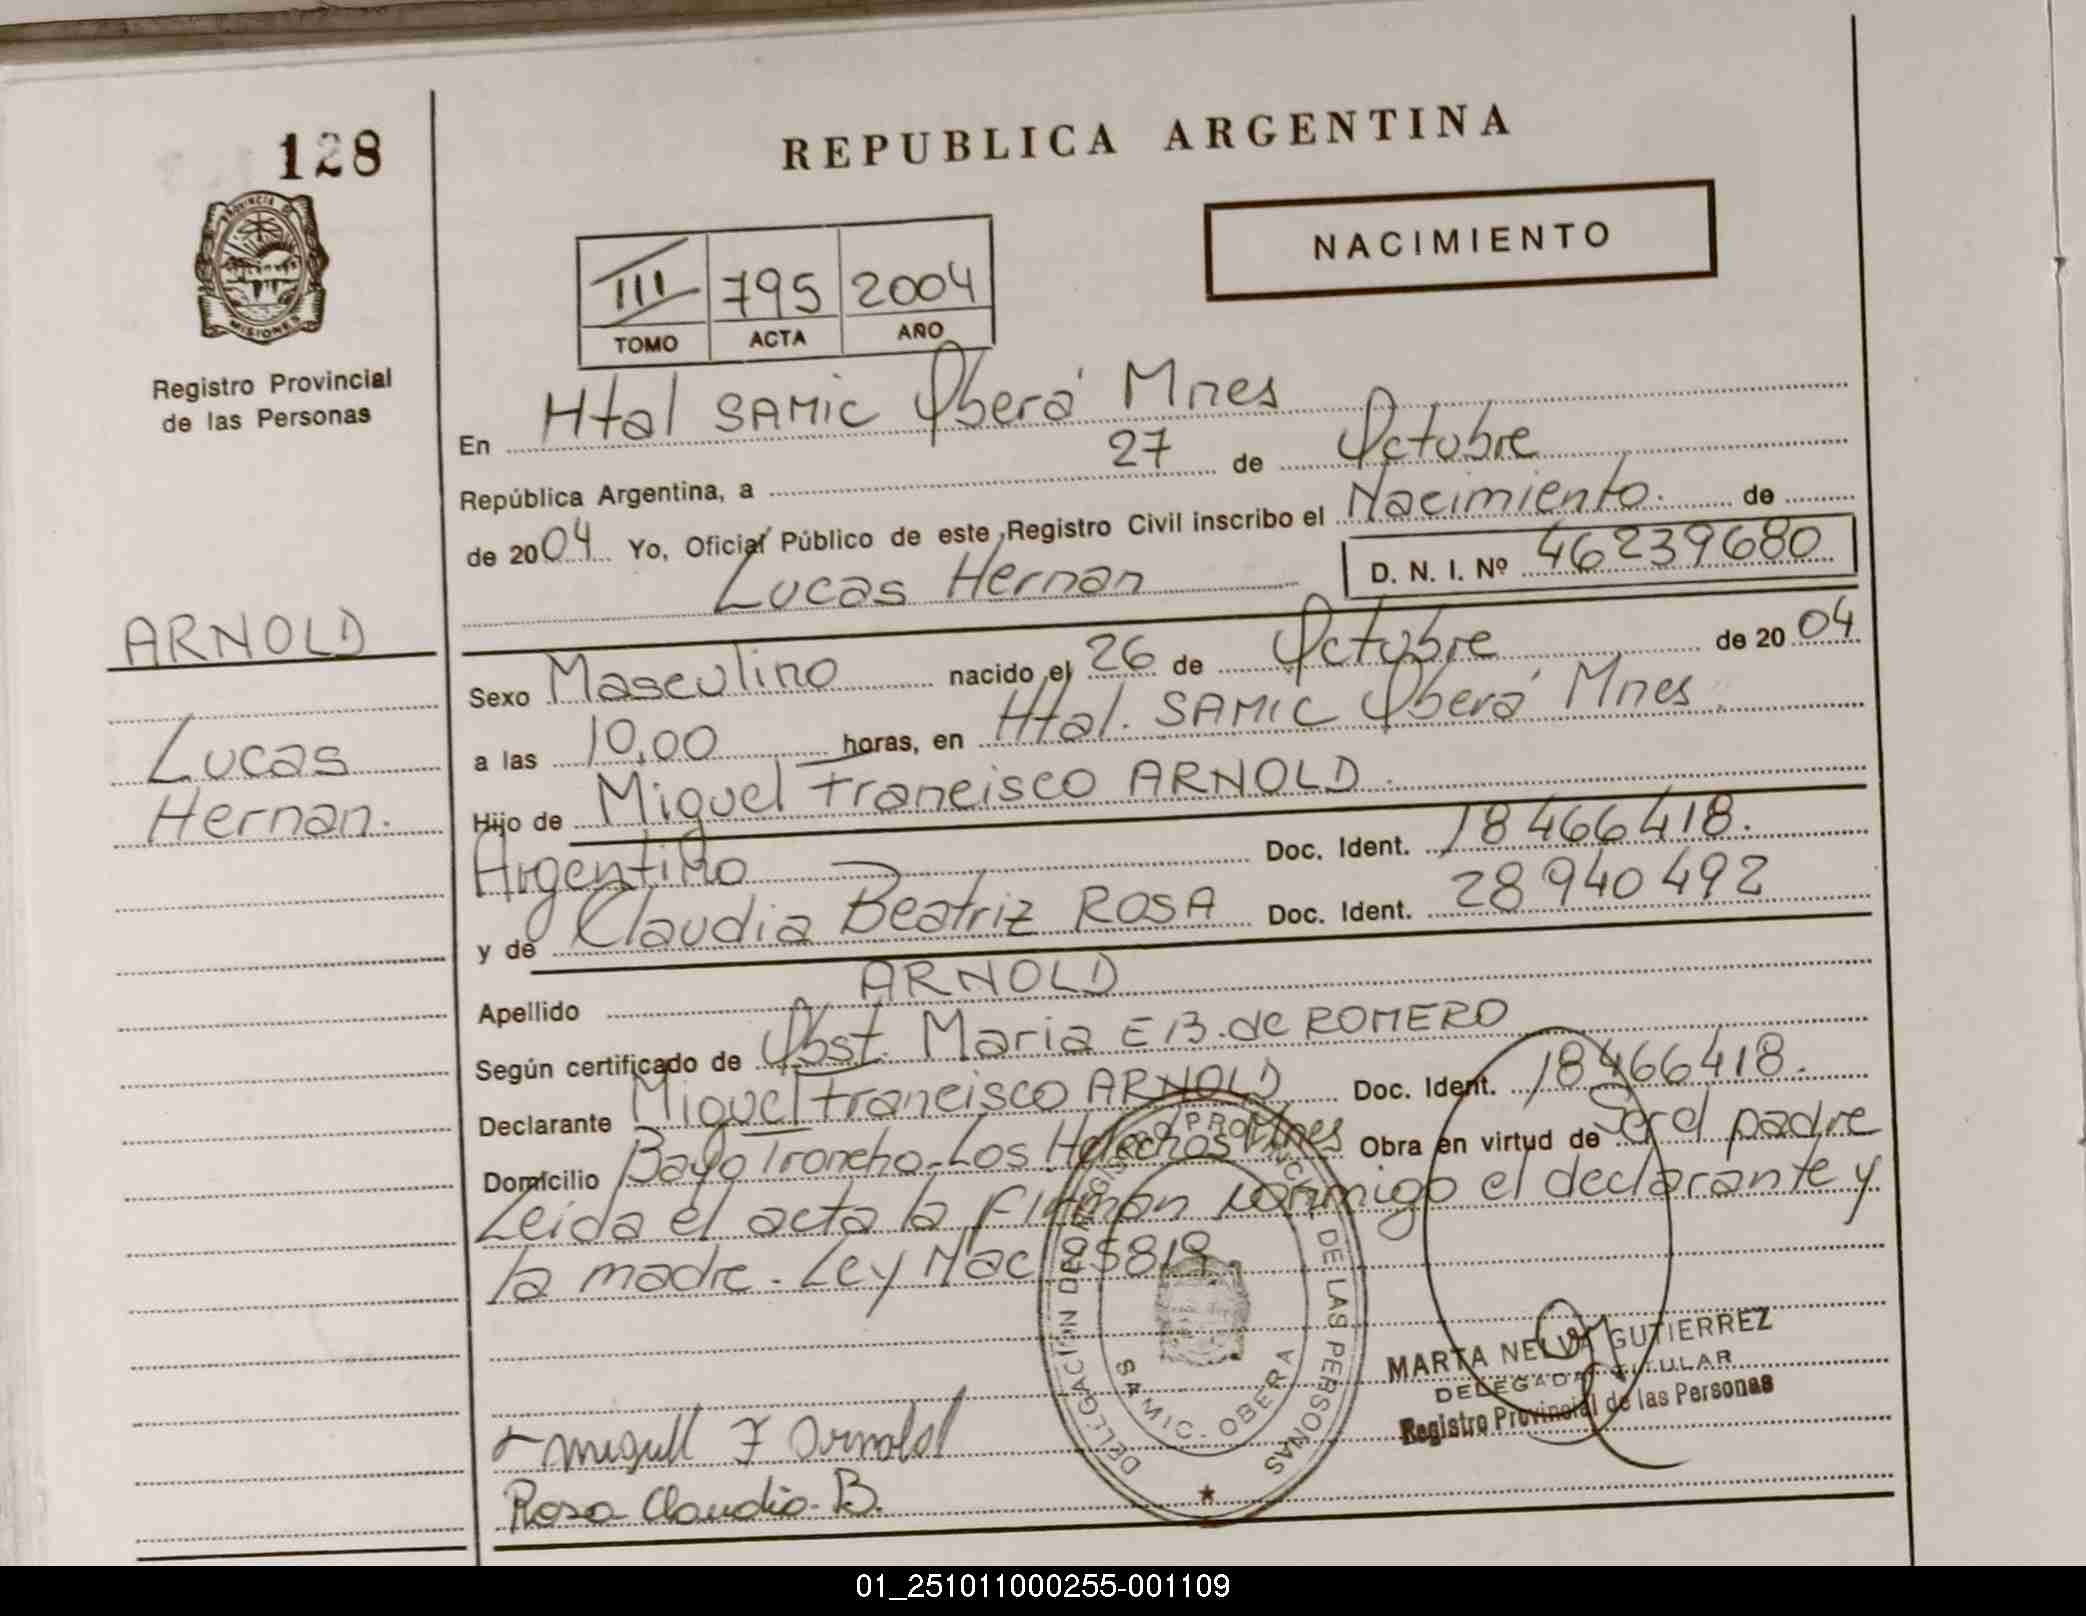 128
REPUBLICA ARGENTINA
PROVINCIA DE
MISIONES
Registro Provincial
de las Personas
NACIMIENTO
III 795 2004
TOMO ACTA AÑO
En Htal SAMIC Oberá Mnes
República Argentina, a 27 de Octubre
de 2004 Yo, Oficial Público de este Registro Civil inscribo el Nacimiento. de
Lucas Hernan D. N. I. Nº 46239680
ARNOLD
Lucas
Hernan.
Sexo Masculino nacido el 26 de Octubre de 2004
a las 10,00 horas, en Htal. SAMIC Oberá Mnes.
Hijo de Miguel Francisco ARNOLD.
Argentino Doc. Ident. 18466418.
y de Claudia Beatriz ROSA Doc. Ident. 28940492
Apellido ARNOLD
Según certificado de Obst. Maria E B. de ROMERO
Declarante Miguel Francisco ARNOLD Doc. Ident. 18466418.
Domicilio Bayo Troncho-Los Helechos Mnes Obra en virtud de Ser el padre
Leida el acta la firman conmigo el declarante y
la madre. Ley Nac 25819
DELEGACIÓN DEL REGISTRO PROVINCIAL DE LAS PERSONAS
SAMIC. OBERA
MARTA NELVA GUTIERREZ
DELEGADA TITULAR
Registro Provincial de las Personas
Miguel F Arnold
Rosa Claudia B.
01_251011000255-001109